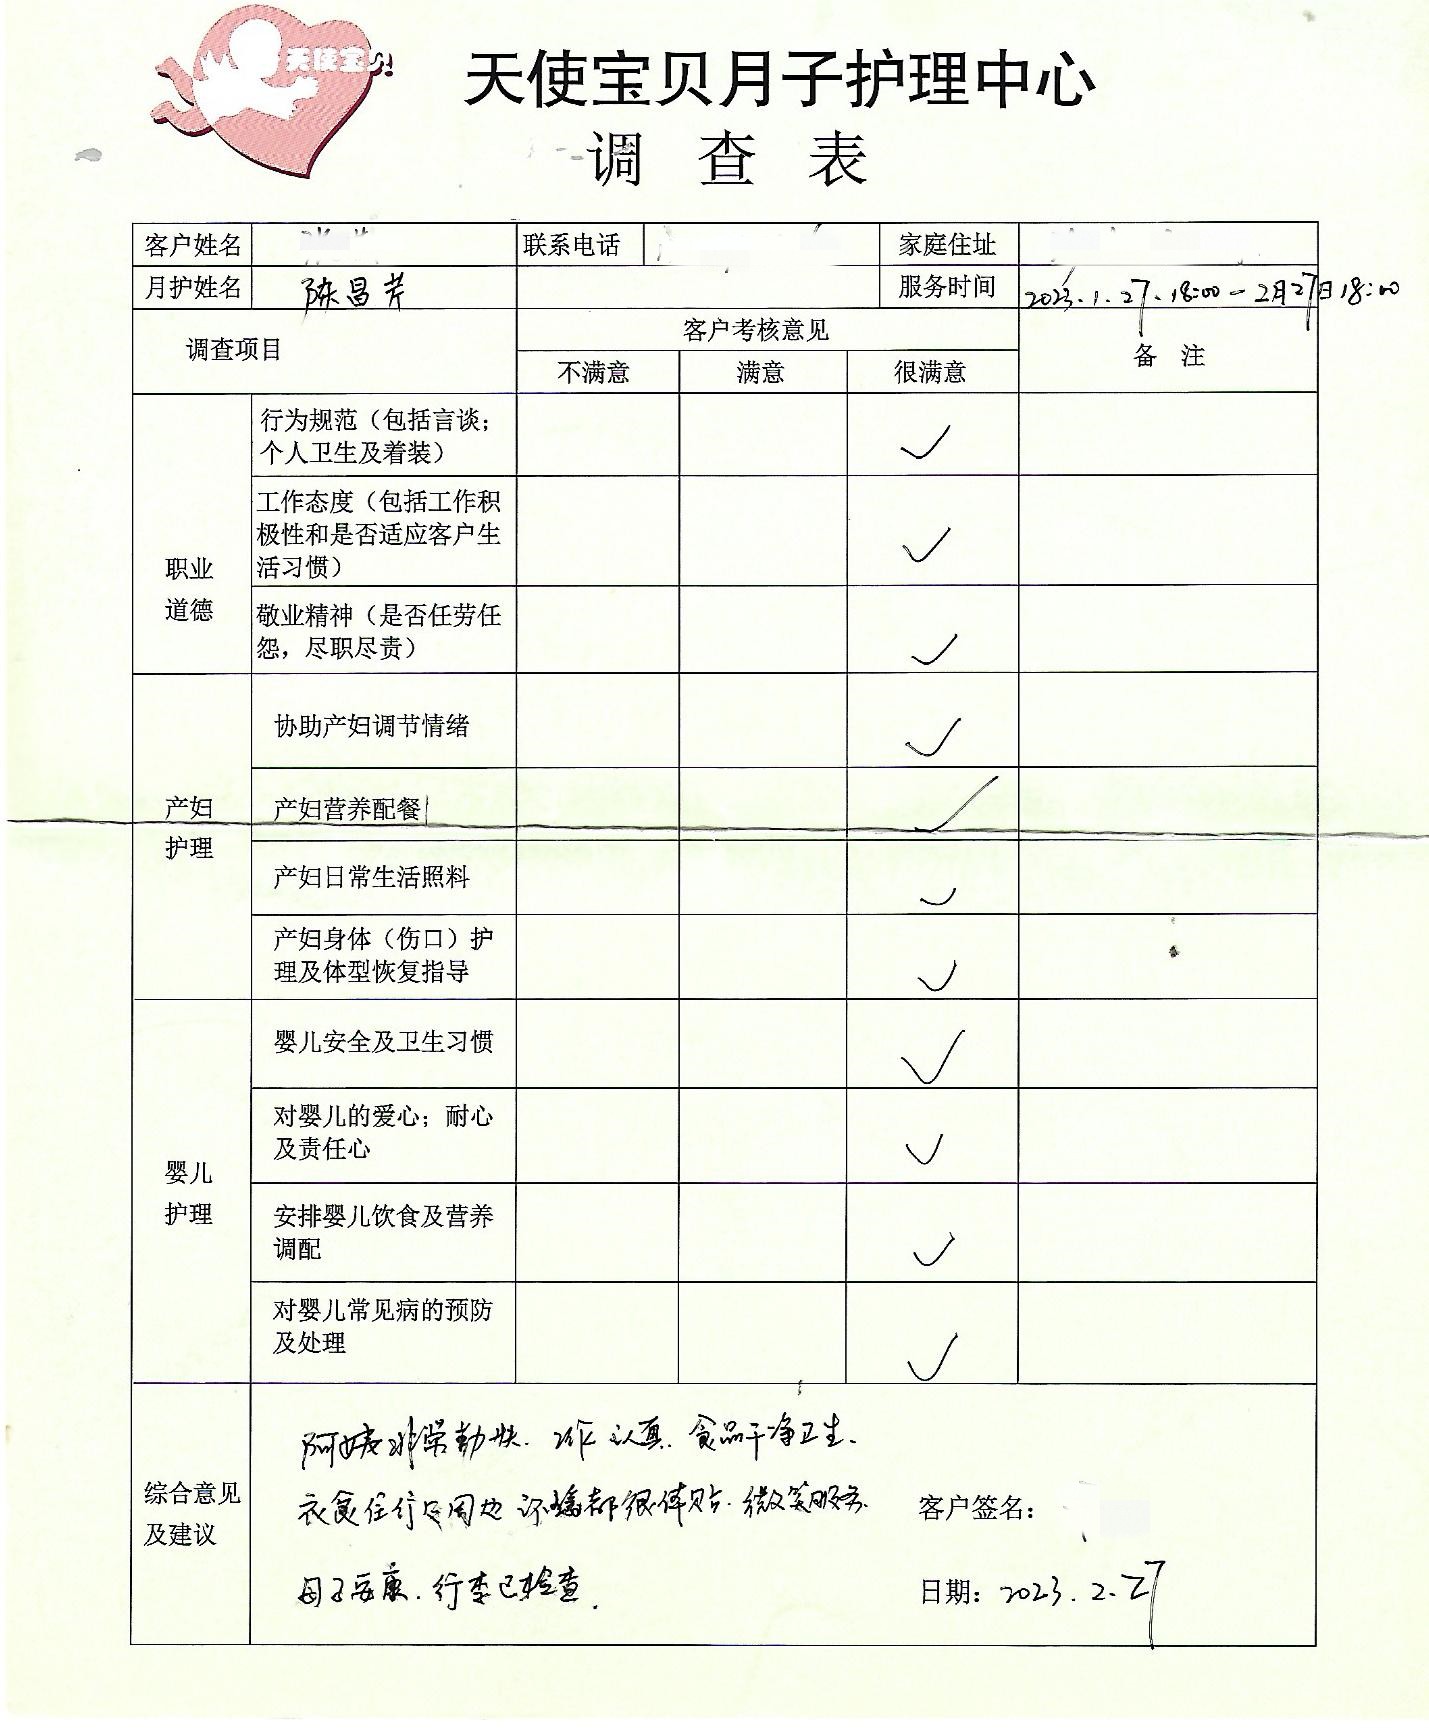 天使宝贝
天使宝贝月子护理中心
调 查 表
客户姓名 联系电话 家庭住址
月护姓名 陈昌芹 服务时间 2023.1.27.18:00-2月27日18:00
调查项目 客户考核意见 备 注
不满意 满意 很满意
职业
道德
行为规范（包括言谈；
个人卫生及着装） ✓
工作态度（包括工作积
极性和是否适应客户生
活习惯） ✓
敬业精神（是否任劳任
怨，尽职尽责） ✓
产妇
护理
协助产妇调节情绪 ✓
产妇营养配餐 ✓
产妇日常生活照料 ✓
产妇身体（伤口）护
理及体型恢复指导 ✓
婴儿
护理
婴儿安全及卫生习惯 ✓
对婴儿的爱心；耐心
及责任心 ✓
安排婴儿饮食及营养
调配 ✓
对婴儿常见病的预防
及处理 ✓
综合意见
及建议
阿姨非常勤快.工作认真.食品干净卫生.
衣食住行 都很体贴.微笑服务
母子安康.行李已检查.
客户签名：
日期：2023.2.27